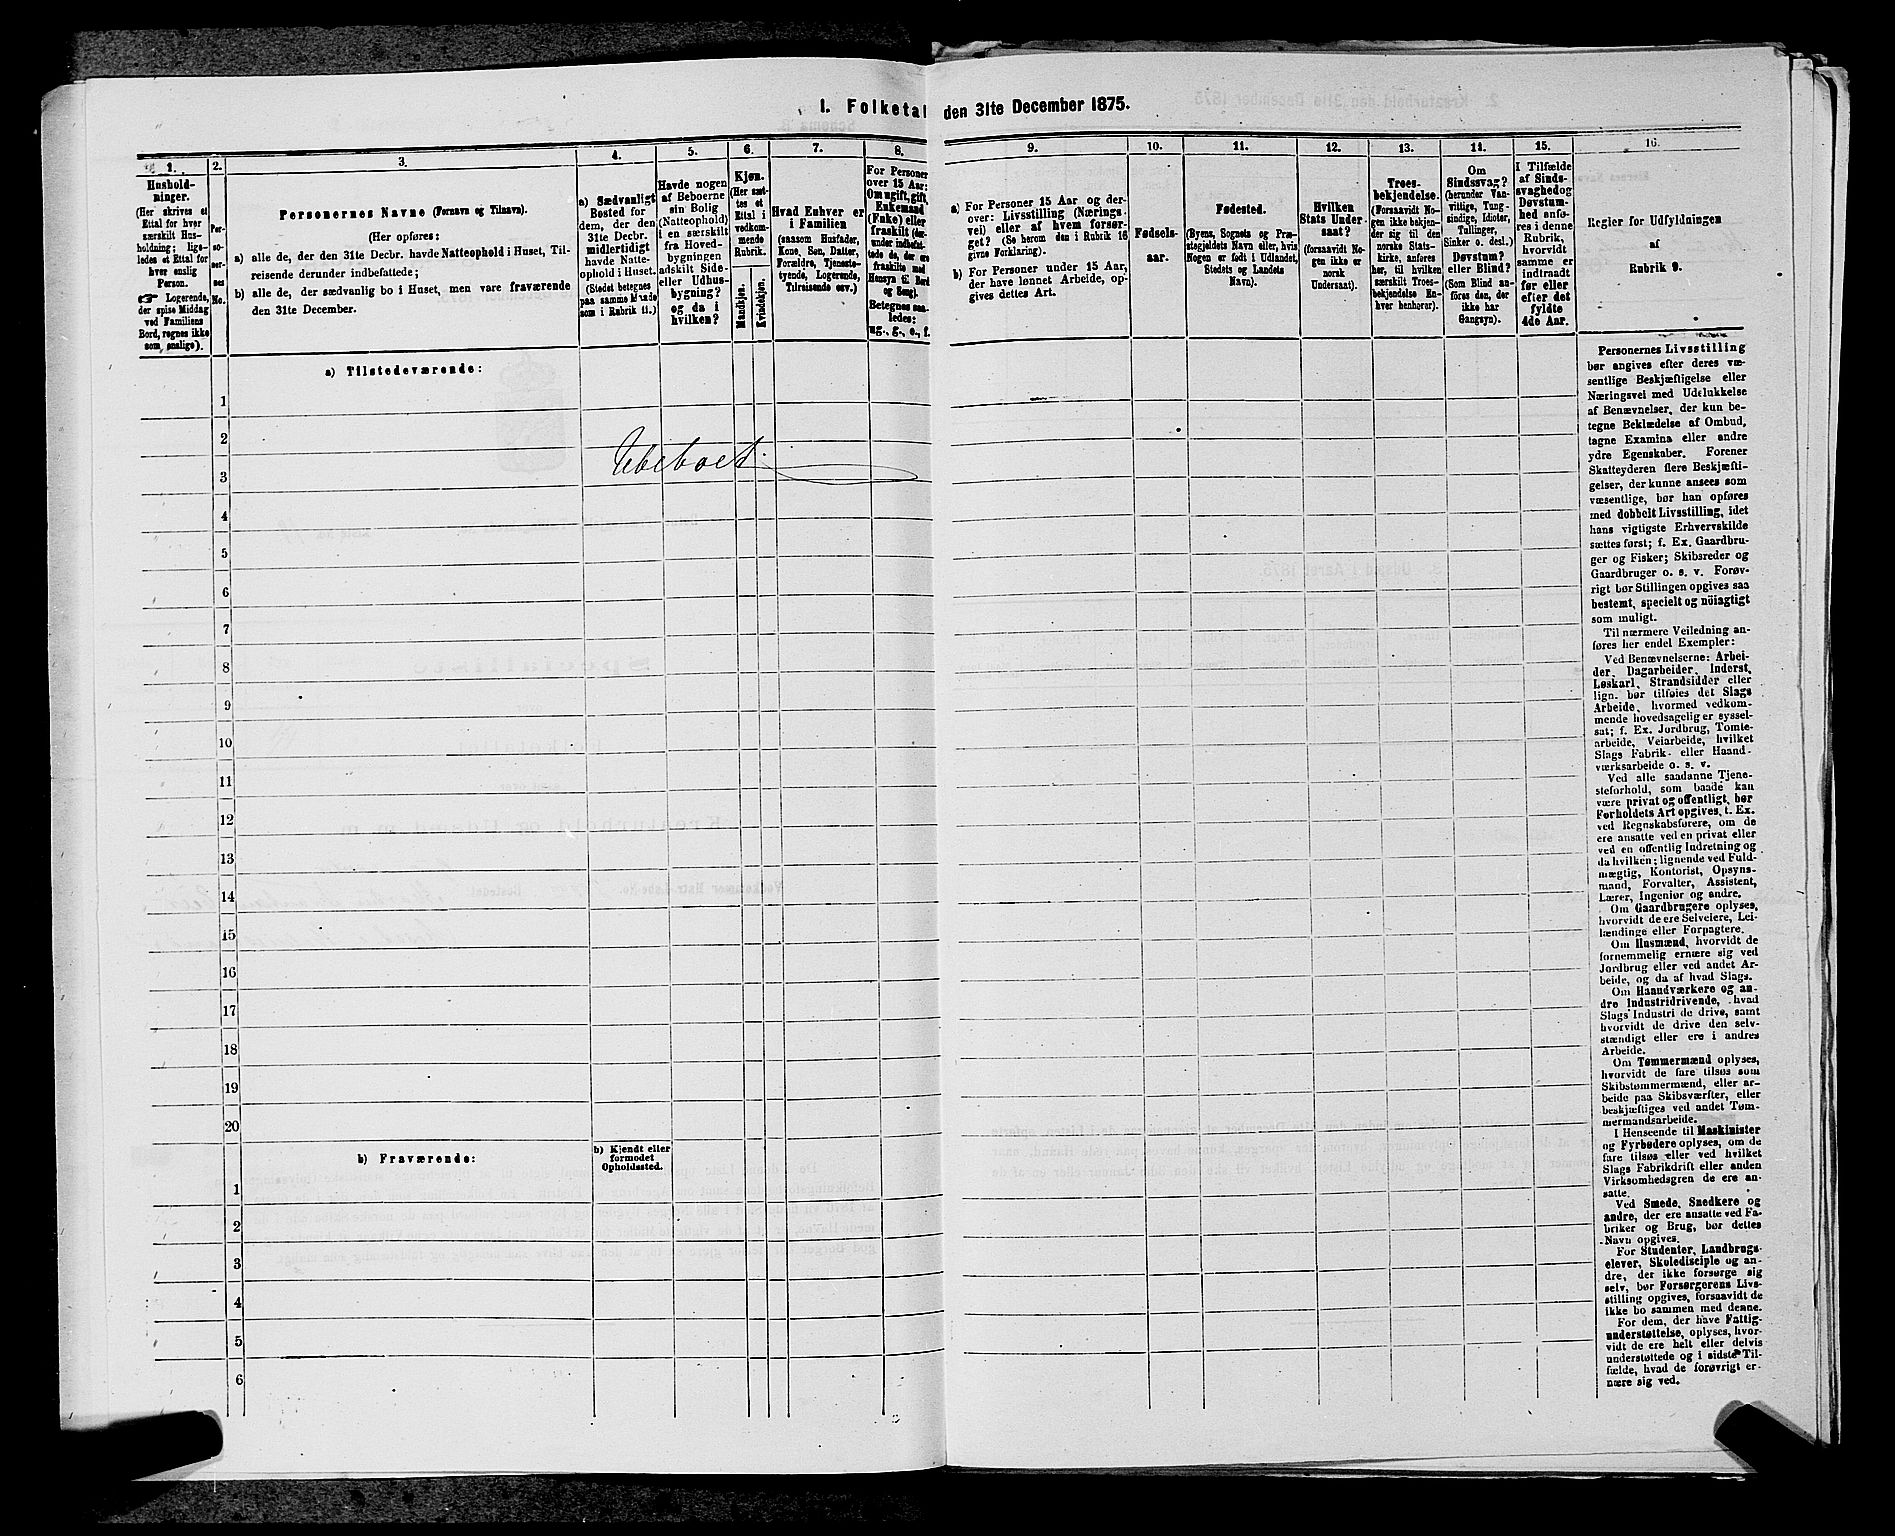 I. Folketal den 31te December 1875.
1.
Hushold-
ninger.
(Her skrives et
Ettal for hver
særskilt Hus-
holdning; lige-
ledes et Ettal for
hver enslig
Person.
☞ Logerende,
der spise Middag
ved Familiens
Bord, regnes ikke
som enslige).
2.
Per-
so-
ner-
nes
No.
3.
Personernes Navne (Fornavn og Tilnavn).
(Her opføres:
a) alle de, der den 31te Decbr. havde Natteophold i Huset, Til-
reisende derunder indbefattede;
b) alle de, der sædvanlig bo i Huset, men vare fraværende
den 31te December.
4.
a) Sædvanligt
Bosted for
dem, der den
31te Decbr.
midlertidigt
havde Natte-
ophold i Huset.
(Stedet betegnes
paa samme Maade
som i Rubrik 11.)
5.
Havde nogen
af Beboerne
sin Bolig
(Natteophold)
i en særskilt
fra Hoved-
bygningen
adskilt Side-
eller Udhus-
bygning?
og da i
hvilken?
6.
Kjøn.
(Her sæt-
tes et
Ettal i
vedkom-
mende
Rubrik.
Mandkjøn.
Kvindekjøn.
7.
Hvad Enhver er
i Familien
(saasom Husfader,
Kone, Søn, Datter,
Forældre, Tjeneste-
tyende, Logerende,
Tilreisende osv.)
8.
For Personer
over 15 Aar:
Om ugift, gift,
Enkemand
(Enke) eller
fraskilt (der-
under indbefat-
tede de, der ere
fraskilte med
Hensyn til Bord
og Seng).
Betegnes saa-
ledes:
ug., g., e., f.
9.
a) For Personer 15 Aar og der-
over: Livsstilling (Nærings-
vei) eller af hvem forsør-
get? (Se herom den i Rubrik 16
givne Forklaring).
b) For Personer under 15 Aar,
der have lønnet Arbeide, op-
gives dettes Art.
10.
Fødsels-
aar.
11.
Fødested.
(Byens, Sognets og Præ-
stegjeldets Navn eller, hvis
Nogen er født i Udlandet,
Stedets og Landets
Navn).
12.
Hvilken
Stats Under-
saat?
(forsaavidt No-
gen ikke er
norsk
Undersaat).
13.
Troes-
bekjendelse.
(Forsaavidt No-
gen ikke bekjen-
der sig til den
norske Stats-
kirke, anføres
her, til hvilken
særskilt Troes-
bekjendelse En-
hver henhører).
14.
Om
Sindssvag?
(herunder Van-
vittige, Tung-
sindige, Idioter,
Tullinger,
Sinker o. desl.)
Døvstum?
eller Blind?
(Som Blind an-
føres den, der
ikke har
Gangsyn).
15.
I Tilfælde
af Sinds-
svaghed og
Døvstum-
hed anfø-
res i denne
Rubrik,
hvorvidt
samme er
indtraadt
før eller
efter det
fyldte
4de Aar.
16.
Regler for Udfyldningen
af
Rubrik 9.
a) Tilstedeværende:
1
2
Ubeboet.
3
4
5
6
7
8
9
10
11
12
13
14
15
16
17
18
19
20
b) Fraværende:
b) Kjendt eller
formodet
Opholdssted.
1
2
3
4
5
6
Personernes Livsstilling
bør angives efter deres væ-
sentlige Beskjæftigelse eller
Næringsvei med Udelukkelse
af Benævnelser, der kun be-
tegne Beklædelse af Ombud,
tagne Examina eller andre
ydre Egenskaber. Forener
Skatteyderen flere Beskjæfti-
gelser, der kunne ansees som
væsentlige, bør han opføres
med dobbelt Livsstilling, idet
hans vigtigste Erhvervskilde
sættes først; f. Ex. Gaardbru-
ger og Fisker; Skibsreder og
Gaardbruger o. s. v. Forøv-
rigt bør Stillingen opgives saa
bestemt, specielt og nøiagtigt
som muligt.
Til nærmere Veiledning an-
føres her endel Exempler:
Ved Benævnelserne: Arbei-
der, Dagarbeider, Inderst,
Løskarl, Strandsidder eller
lign. bør tilføies det Slags
Arbeide, hvormed vedkom-
mende hovedsagelig er syssel-
sat; f. Ex. Jordbrug, Tomte-
arbeide, Veiarbeide, hvilket
Slags Fabrik- eller Haand-
værksarbeide o. s. v.
Ved alle saadanne Tjene-
steforhold, som baade kan
være privat og offentligt, bør
Forholdets Art opgives, t. Ex.
ved Regnskabsførere, om de
ere ansatte ved en privat eller
ved en offentlig Indretning og
da hvilken; lignende ved Fuld-
mægtig, Kontorist, Opsyns-
mand, Forvalter, Assistent,
Lærer, Ingeniør og andre.
Om Gaardbrugere oplyses,
hvorvidt de ere Selveiere, Lei-
lændinge eller Forpagtere.
Om Husmænd, hvorvidt de
fornemmelig ernære sig ved
Jordbrug eller ved andet Ar-
beide, og da af hvad Slags.
Om Haandværkere og an-
dre Industridrivende, hvad
Slags Industri de drive, samt
hvorvidt de drive den selv-
stændigt eller ere i andres
Arbeide.
Om Tømmermænd oplyses,
hvorvidt de fare tilsøs som
Skibstømmermænd, eller ar-
beide paa Skibsværfter, eller
beskjæftiges ved andet Tøm-
mermandsarbeide.
I Henseende til Maskinister
og Fyrbødere oplyses, om de
fare tilsøs eller ved hvilket
Slags Fabrikdrift eller anden
Virksomhedsgren de ere an-
satte.
Ved Smede, Snedkere og
andre, der ere ansatte ved Fa-
briker og Brug, bør dettes
Navn opgives.
For Studenter, Landbrugs-
elever, Skoledisciple og an-
dre, der ikke forsørge sig
selv, bør Forsørgerens Livs-
stilling opgives, forsaavidt de
ikke bo sammen med denne.
For dem, der have Fattig-
understøttelse, oplyses, hvor-
vidt de ere helt eller delvis
understøttede og i sidste Til-
fælde, hvad de forøvrigt er-
nære sig ved.